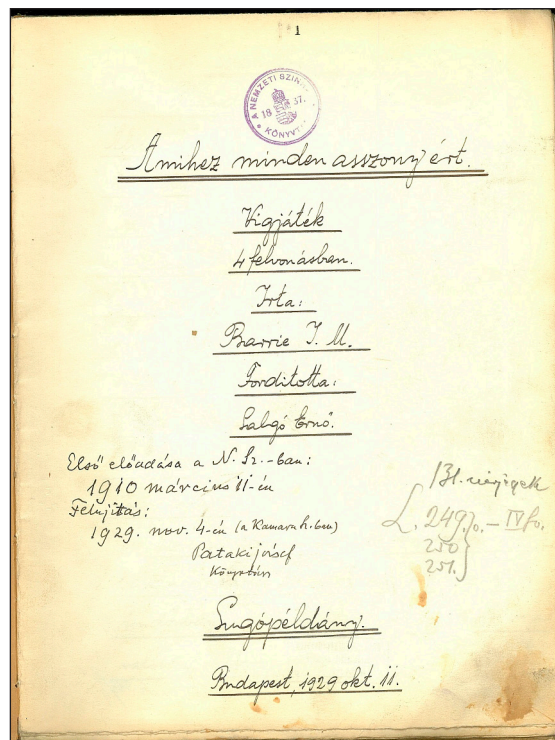 1
A NEMZETI SZIN
18 37.
KÖNYVT
Amihez minden asszony ért.
Vigjáték
4 felvonásban.
Irta:
Barrie J. M.
Forditotta:
Salgó Ernő.
Első előadása a N. Sz.-ban:
1910 március 11-én
Felujitás:
1929. nov. 4-én (a Kamarah.ban)
Pataki József
Könyvtáros
131.
L. 249 – IV
250
251.
Sugópéldány.
Budapest, 1929 okt. 11.